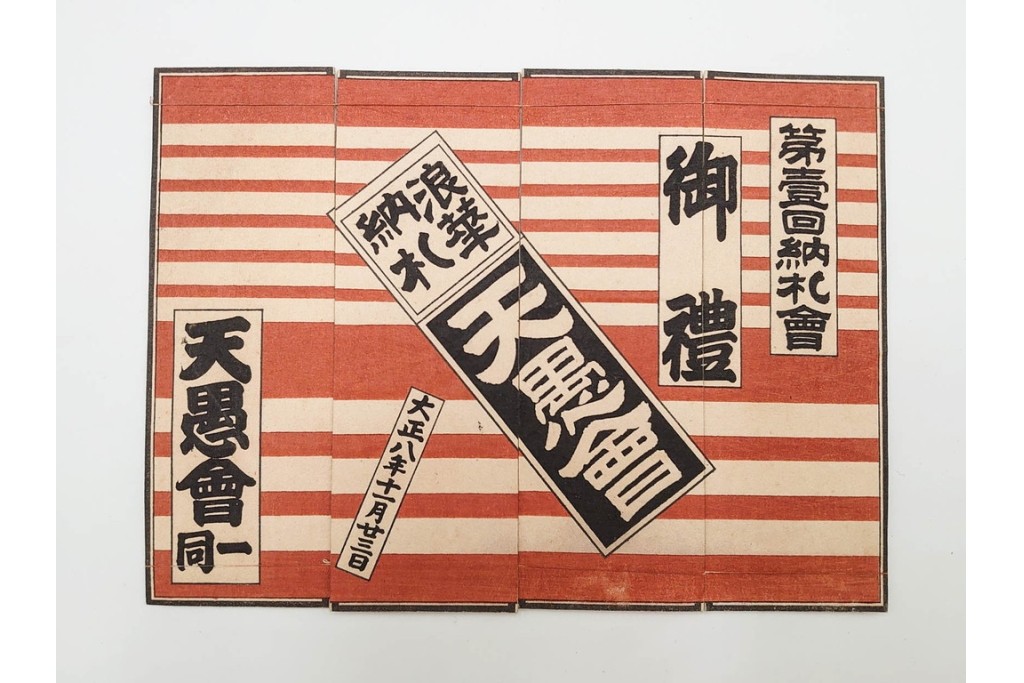 第壹回納札會
御禮
浪華
納札
天愚會
大正八年十一月廿三日
天愚會
一同